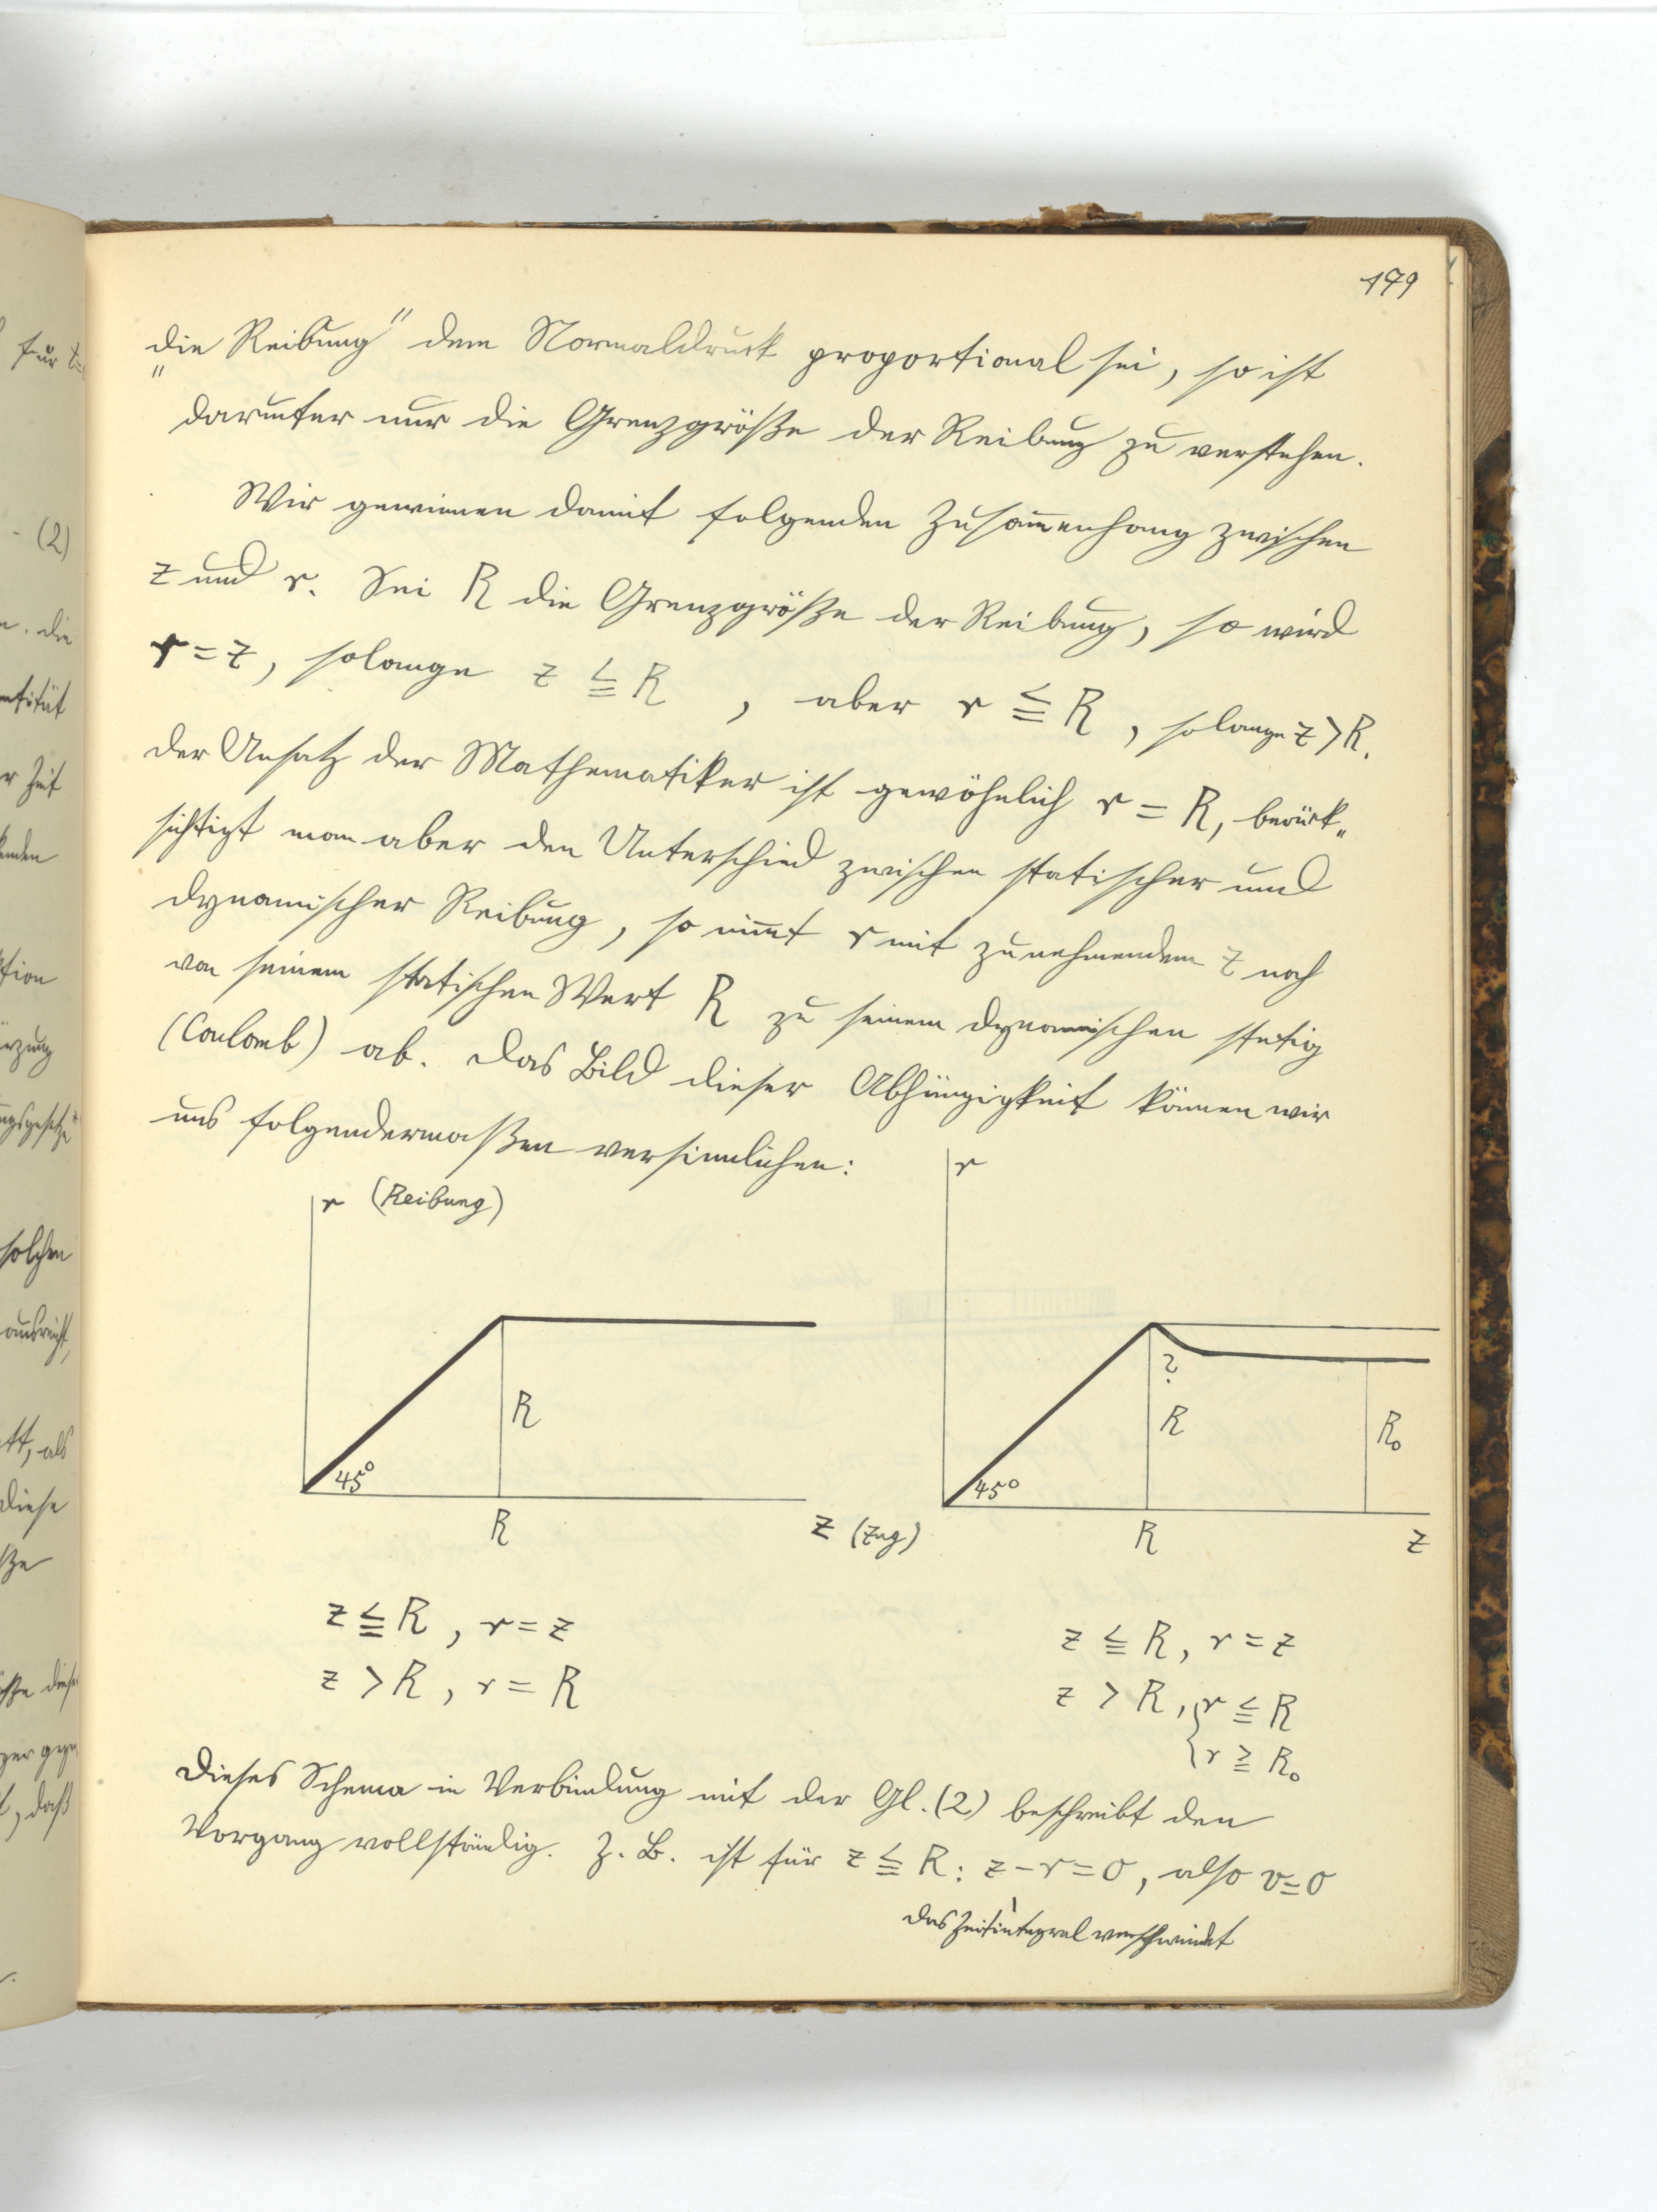 179
„die Reibung" dem Normaldruck proportional sei, so ist
darunter nur die Grenzgröße der Reibung zu verstehen.
Wir gewinnen damit folgenden Zusam̄enhang zwischen
z und r. Sei R die Grenzgröße der Reibung, so wird
r = z, solange z ≦ R, aber r ≦ R, solange z > R.
Der Ansatz der Mathematiker ist gewöhnlich r = R, berück„
sichtigt man aber den Unterschied zwischen statischer und
dynamischer Reibung, so nim̄t r mit zunehmendem z noch
von seinem statischen Wert R zu seinem dynamischen stetig
(Coulomb) ab. Das Bild dieser Abhängigkeit können wir
uns folgendermaßen versinnlichen:
r (Reibung)
R
45°
R
z (Zug)
r
?
R
R₀
45°
R
z
z ≦ R, r = z
z > R, r = R
z ≦ R, r = z
z > R, { r ≦ R
{ r ≧ R₀
Dieses Schema in Verbindung mit der Gl. (2) beschreibt den
Vorgang vollständig. Z. B. ist für z ≦ R: z – r = 0, also v = 0
das Zeitintegral verschwindet
für t=
- (2)
die
Zeit
solchen
ausreicht,
als
diese
daß